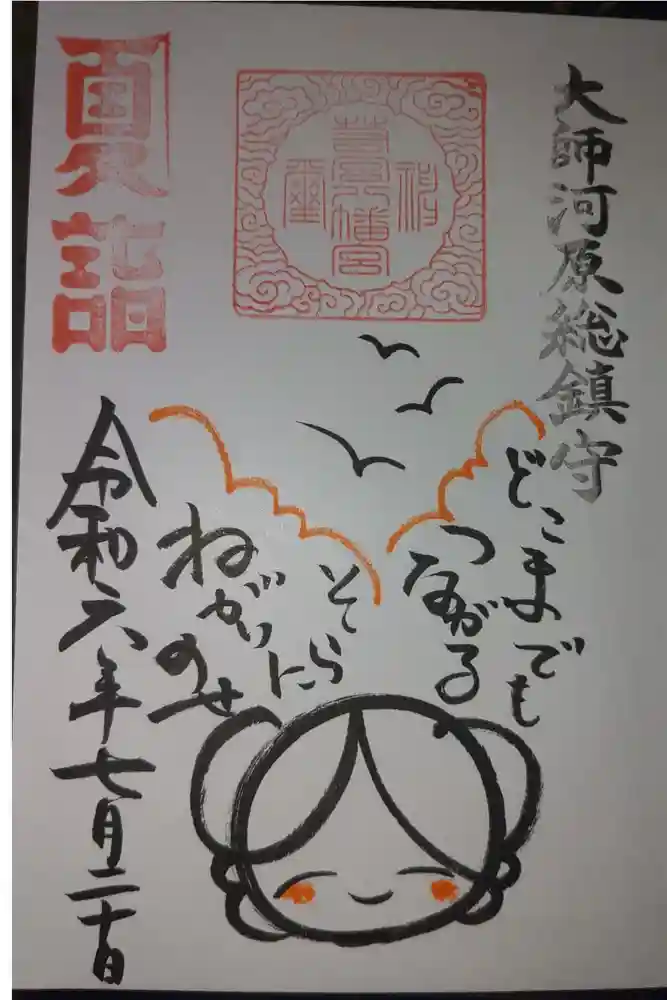 大師河原総鎮守
若宮八幡宮
夏詣
どこまでも
つながる
そらに
ねがい
のせ
令和六年七月二十日